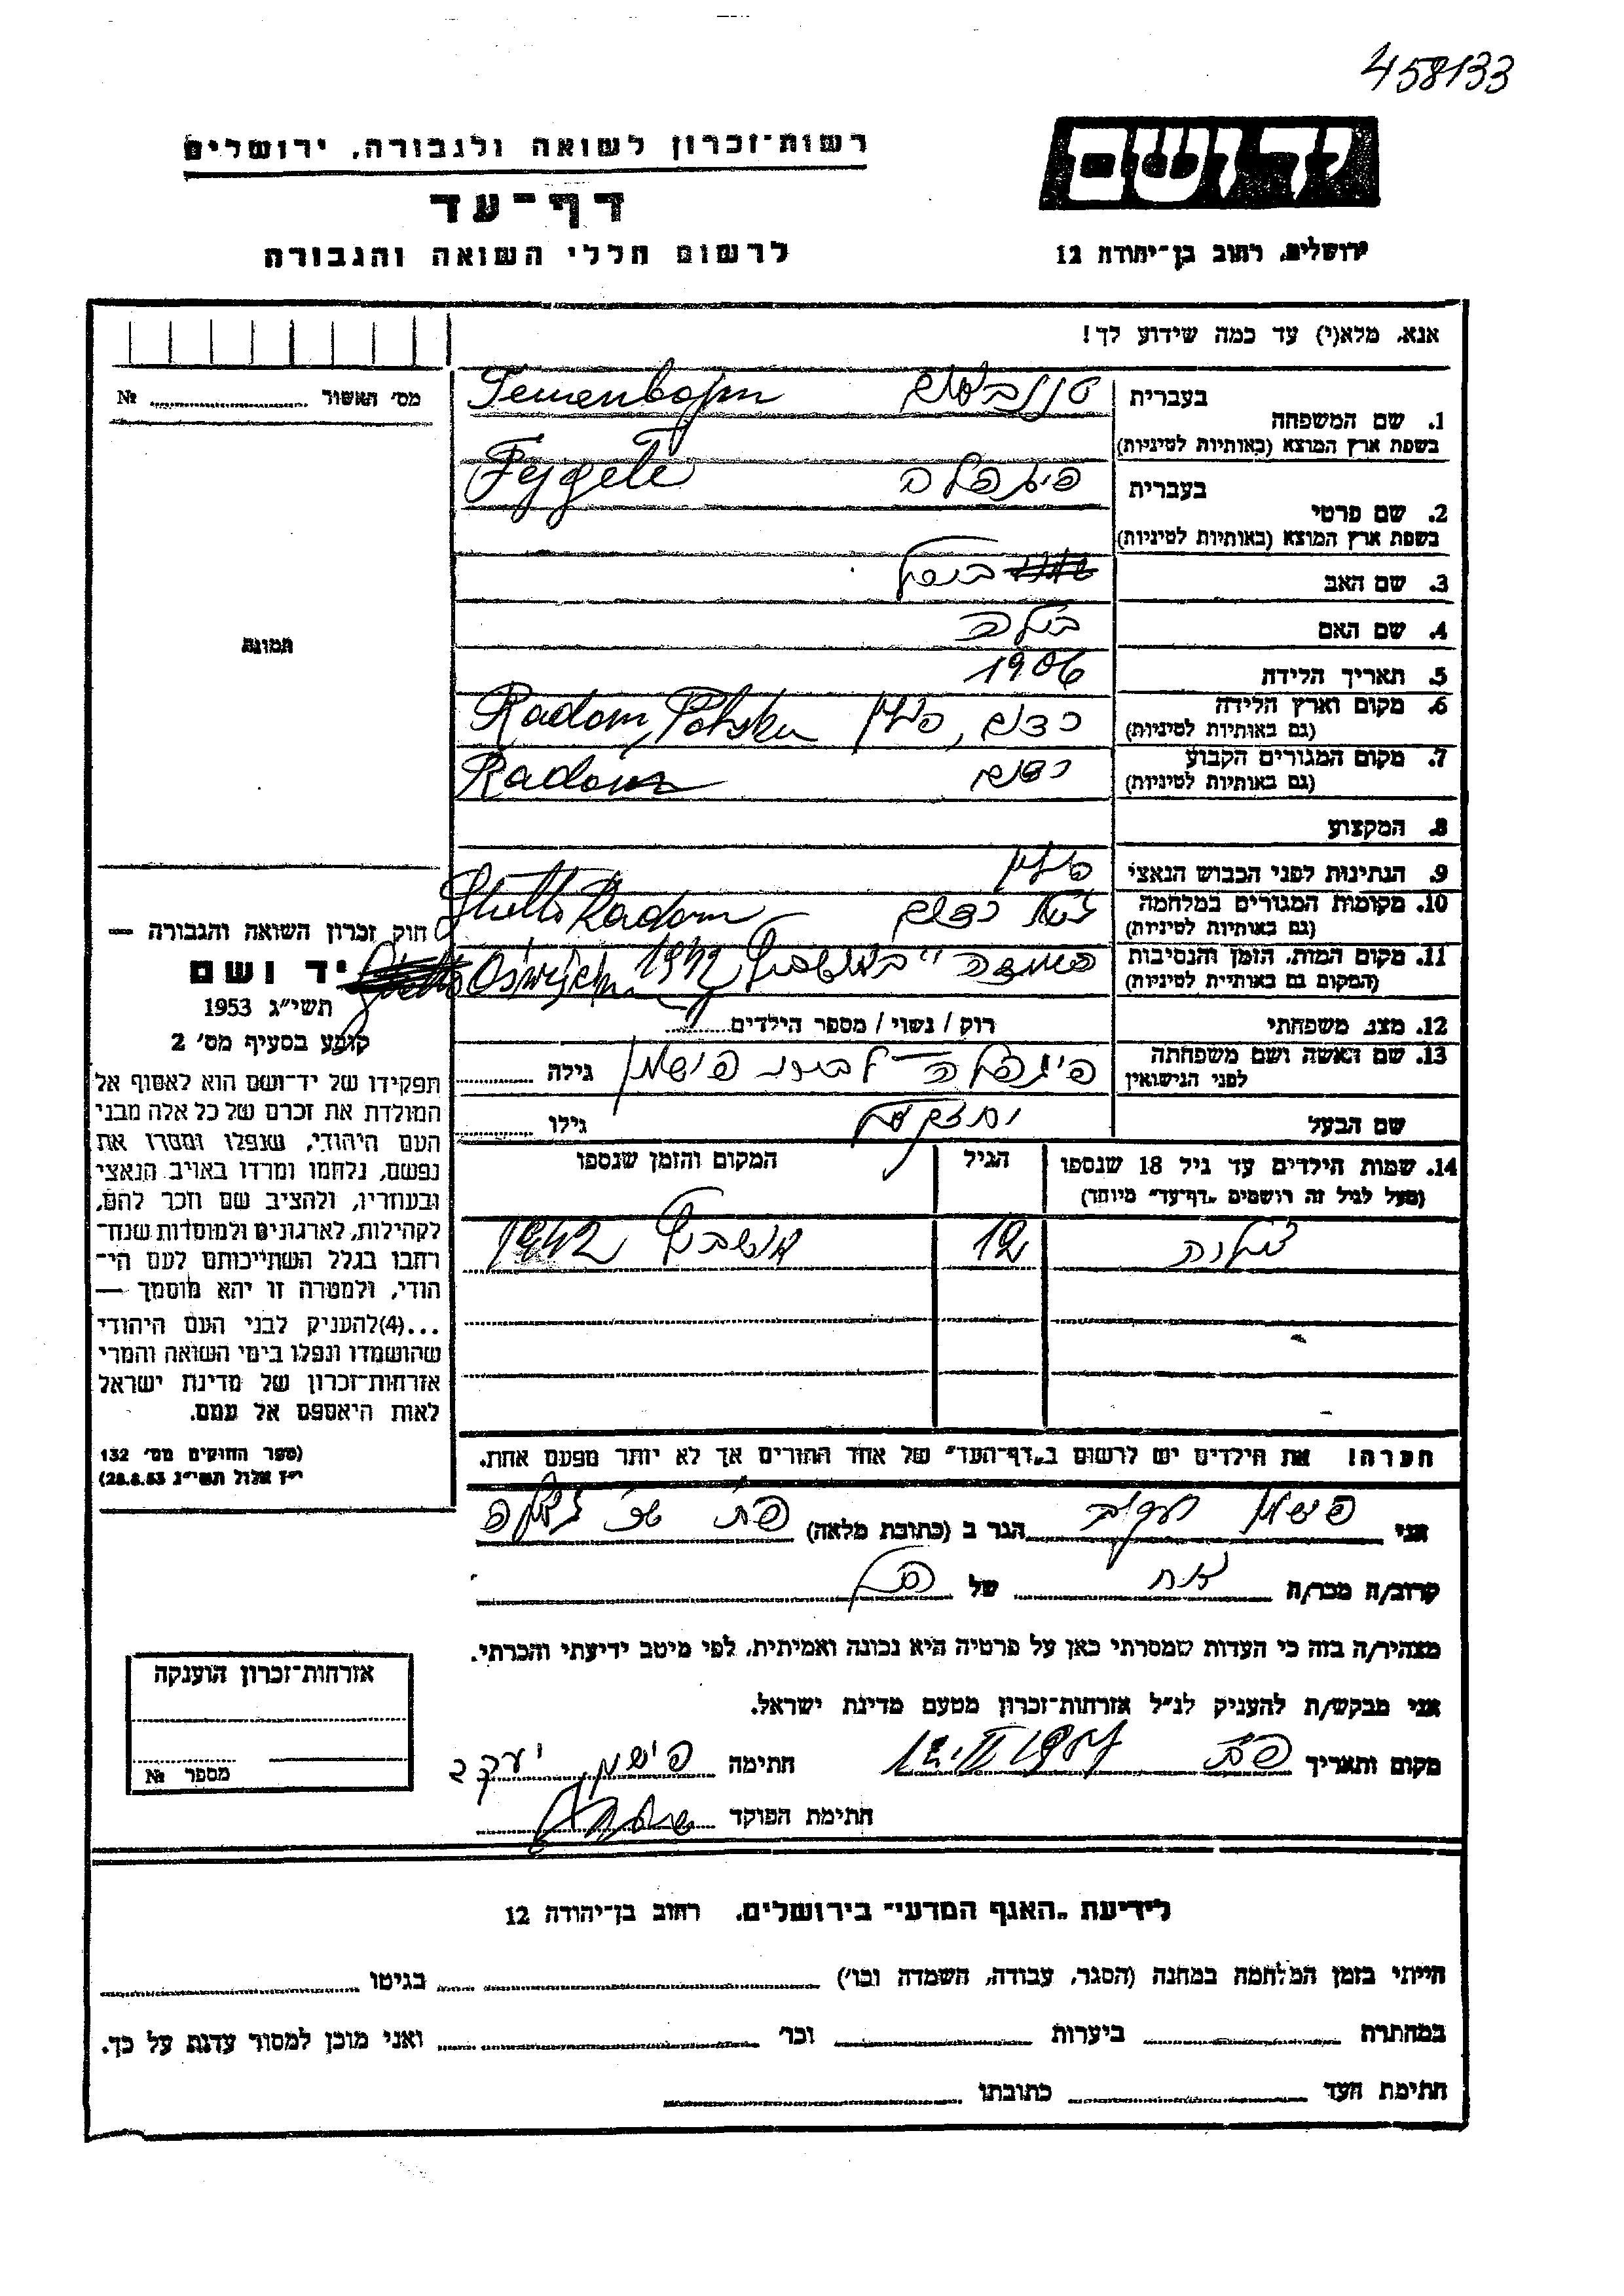 458133
יד ושם
רשות־זכרון לשואה ולגבורה, ירושלים
דף־עד
לרשום חללי השואה והגבורה
ירושלים, רחוב בן־יהודה 12
אנא, מלא(י) עד כמה שידוע לך!
מס' האשור № 
תמונה
בעברית
1. שם המשפחה
בשפת ארץ המוצא (באותיות לטיניות)
בעברית
2. שם פרטי Fejgele
בשפת ארץ המוצא (באותיות לטיניות)
3. שם האב
4. שם האם בילה
5. תאריך הלידה 1906
6. מקום וארץ הלידה רדום, פולין Radom, Polska
(גם באותיות לטיניות)
7. מקום המגורים הקבוע רדום Radom
(גם באותיות לטיניות)
8. המקצוע
9. הנתינות לפני הכבוש הנאצי פולין
10. מקומות המגורים במלחמה גטו רדום Ghetto Radom
(גם באותיות לטיניות)
11. מקום המות, הזמן והנסיבות 1942
(המקום גם באותיית לטיניות)
12. מצב משפחתי רוק / נשוי / מספר הילדים
13. שם האשה ושם משפחתה פיגהלה לבית פישמן גילה
לפני הנישואין
שם הבעל גילו
14. שמות הילדים עד גיל 18 שנספו הגיל המקום והזמן שנספו
(מעל לגיל זה רושמים „דף־עד" מיוחד)
12 אושביץ 1942
הערה! את הילדים יש לרשום ב„דף־העד" של אחד ההורים אך לא יותר מפעם אחת.
חוק זכרון השואה והגבורה —
יד ושם
תשי"ג 1953
קובע בסעיף מס' 2
תפקידו של יד־ושם הוא לאסוף אל
המולדת את זכרם של כל אלה מבני
העם היהודי, שנפלו ומסרו את
נפשם, נלחמו ומרדו באויב הנאצי
ובעוזריו, ולהציב שם וזכר להם,
לקהילות, לארגונים ולמוסדות שנח־
רחבו בגלל השתייכותם לעם הי־
הודי, ולמטרה זו יהא מוסמך —
...(4)להעניק לבני העם היהודי
שהושמדו ונפלו בימי השואה והמרי
אזרחות־זכרון של מדינת ישראל
לאות היאספם אל עמם.
(ספר החוקים מס' 132
י"ז אלול תשי"ג 28.8.53)
אני פישמן יעקב הגר ב (כתובת מלאה)
קרוב/ה מכר/ה אח של
מצהיר/ה בזה כי העדות שמסרתי כאן על פרטיה היא נכונה ואמיתית, לפי מיטב ידיעתי והכרתי.
אני מבקש/ת להעניק לנ"ל אזרחות־זכרון מטעם מדינת ישראל.
מקום ותאריך חתימה פישמן יעקב
חתימת הפוקד
אזרחות־זכרון הוענקה
מספר №
לידיעת „האגף המדעי" בירושלים, רחוב בן־יהודה 12
הייתי בזמן המלחמה במחנה (הסגר, עבודה, השמדה וכו') בגיטו
במחתרת ביערות וכו' ואני מוכן למסור עדות על כך.
חתימת העד כתובתו